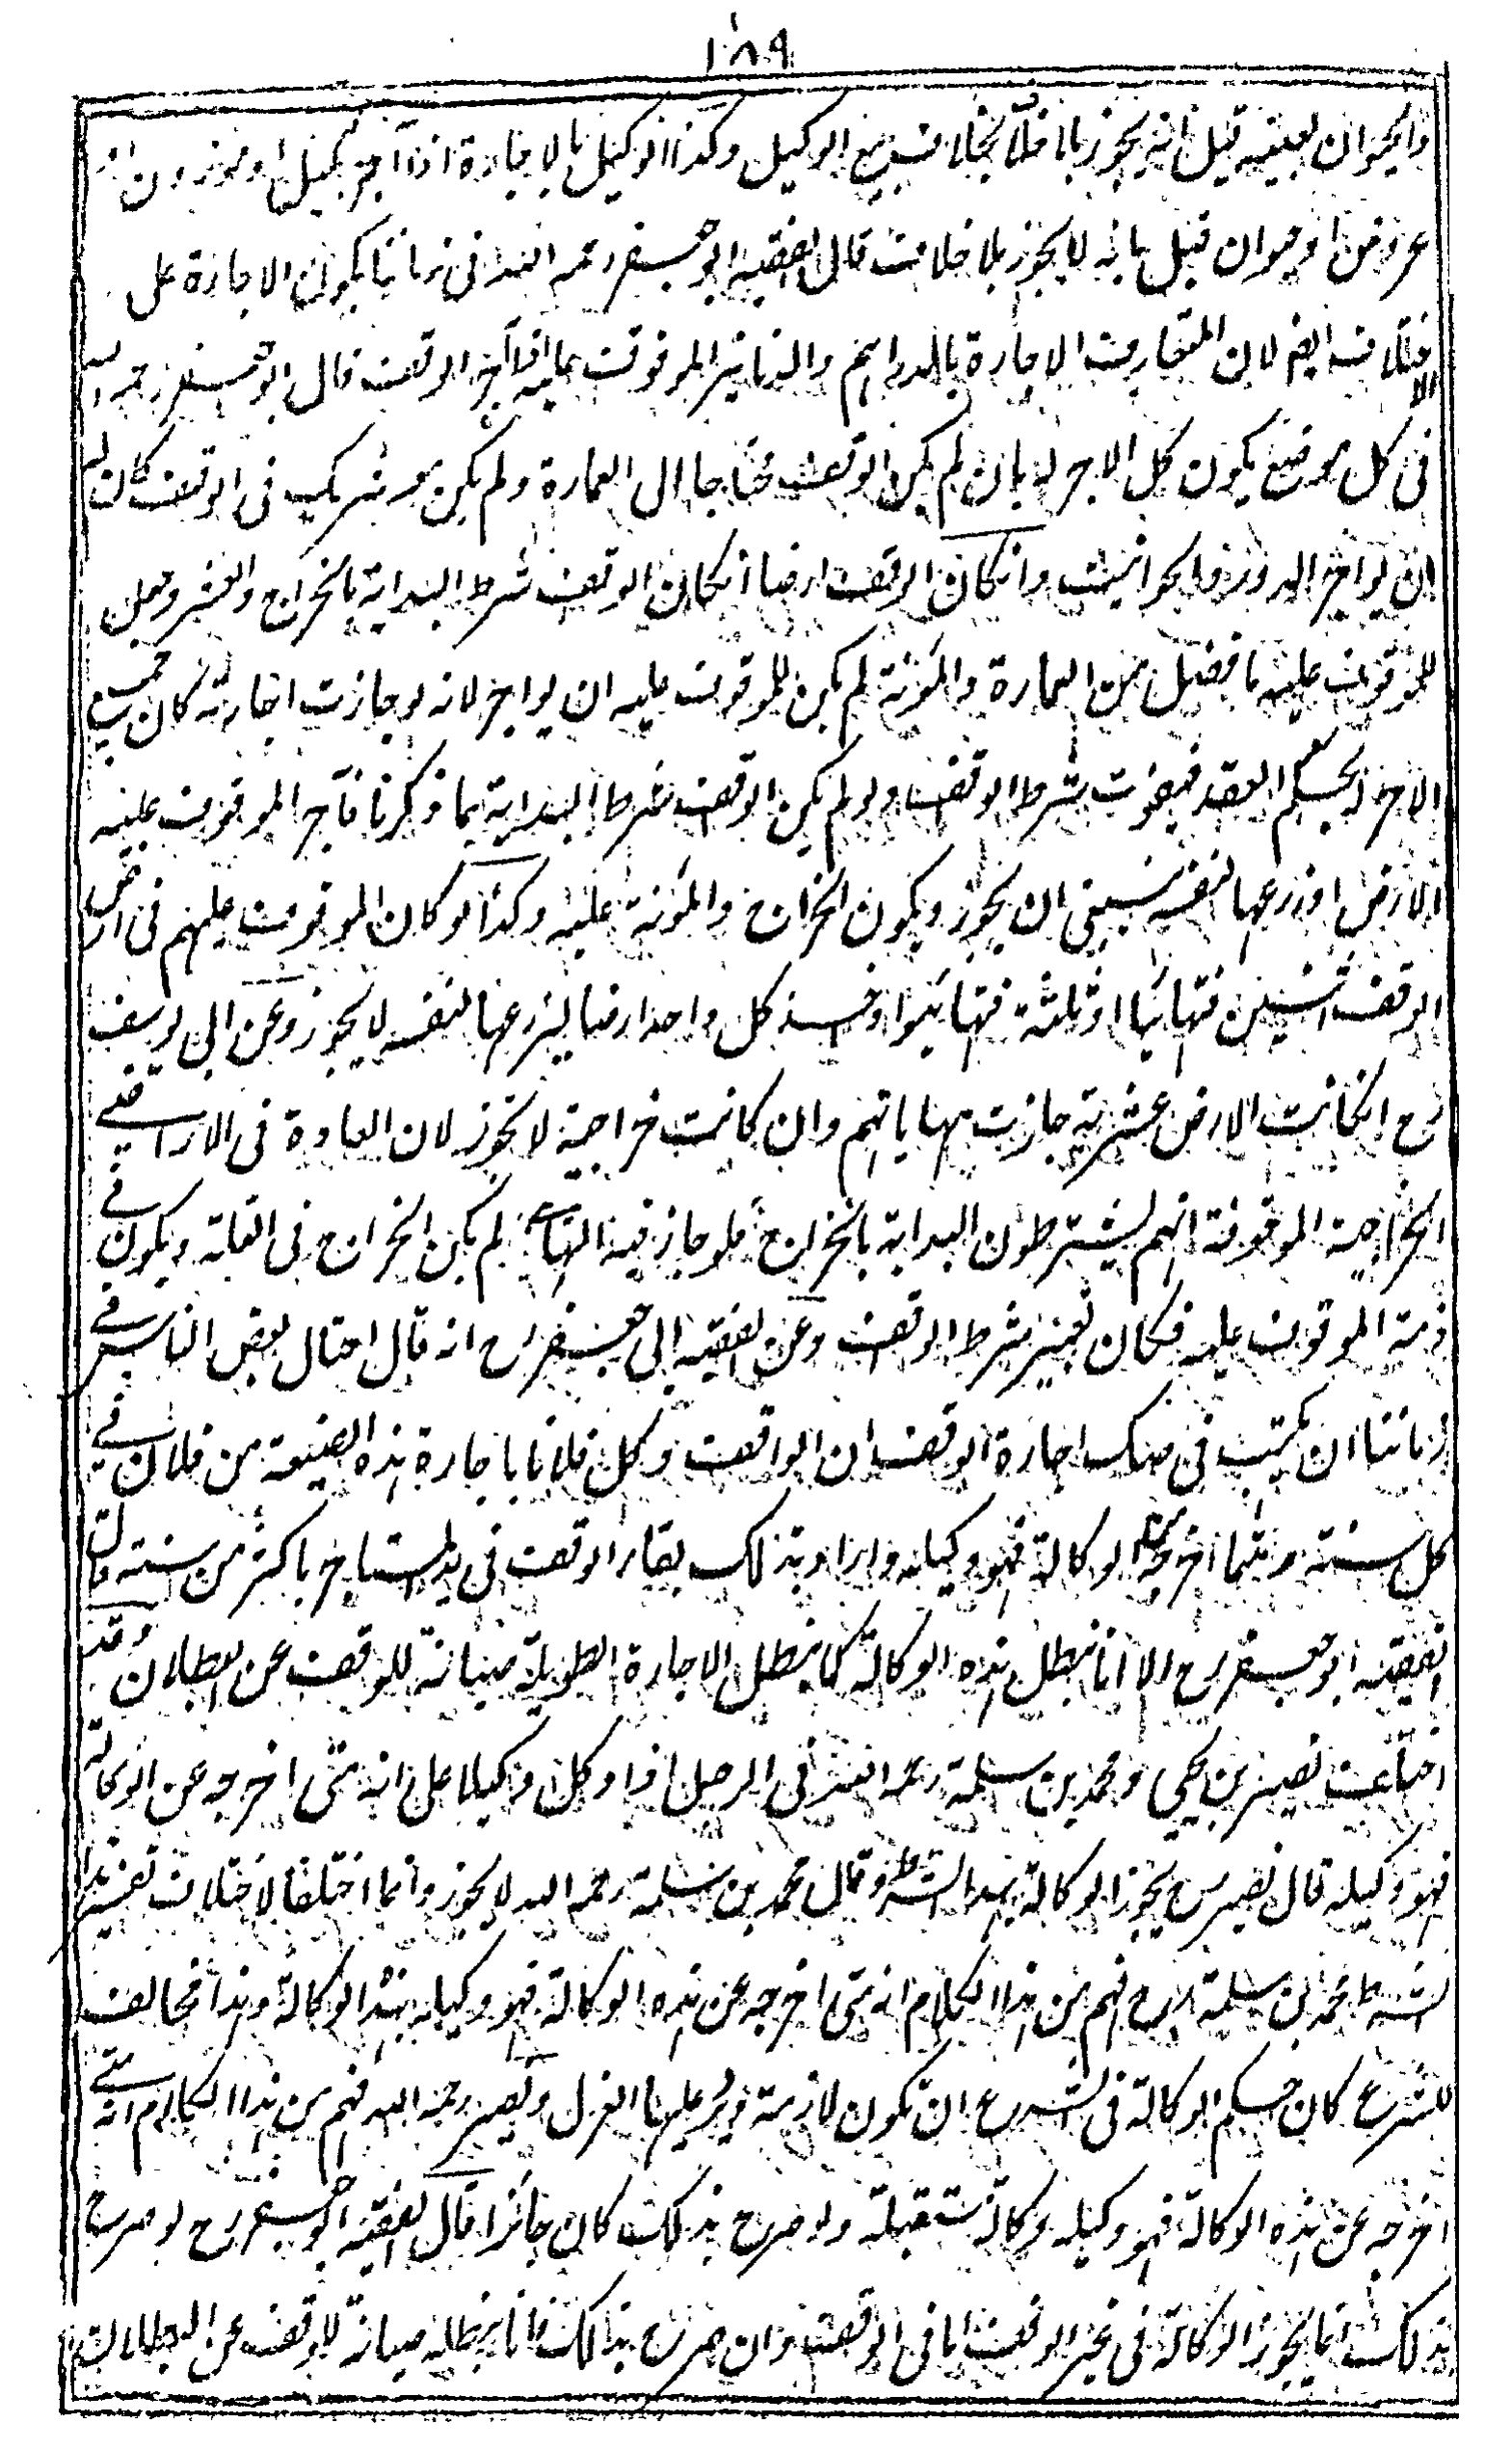 ١٨٩
والحيوان بعينه قيل انه يجوز بلا خلاف بخلاف بيع الوكيل وكذا الوكيل بالاجارة اذا آجر بمكيل او موزون او
عروض او حيوان قيل بانه لا يجوز بلا خلاف قال الفقيه ابو جعفر رحمه الله في زماننا يكون الاجارة على
الاختلاف ايضا لان المتعارف الاجارة بالدراهم والدنانير الموقوف عليه اذا آجر الوقف قال ابو جعفر رحمه الله
في كل موضع يكون كل الاجر له بان لم يكن الوقف محتاجا الى العمارة ولم يكن معه شريك في الوقف كان له
ان يواجر الدور والحوانيت وانكان الوقف ارضا انكان الوقف شرط البداية بالخراج والعشر وجعل
للموقوف عليه ما فضل من العمارة والمؤنة لم يكن للموقوف عليه ان يواجر لانه لو جازت اجارته كان جميع
الاجر له بحكم العقد فيفوت شرط الوقف ولو لم يكن الوقف شرط البداية بما ذكرنا فآجر الموقوف عليه
الارض او زرعها لنفسه ينبغي ان يجوز ويكون الخراج والمؤنة عليه وكذا لو كان الموقوف عليهم في ارض
الوقف اثنين فتهائيا او ثلثة فتهايئوا واخذ كل واحد ارضا ليزرعها لنفسه لا يجوز وعن ابي يوسف
رح انكانت الارض عشرية جازت مهاياتهم وان كانت خراجية لا يجوز لان العادة في الاراضي
الخراجية الموقوفة انهم يشترطون البداية بالخراج فلو جاز فيه التهايؤ لم يكن الخراج في الغلة ويكون في
ذمة الموقوف عليه فكان تغيير شرط الوقف وعن الفقيه ابي جعفر رح انه قال احتال بعض الناس في
زماننا ان يكتب في صك اجارة الوقف ان الواقف وكل فلانا باجارة هذه الضيعة من فلان في
كل سنة ومتما اخرجه من الوكالة فهو وكيله وارادوا بذلك بقاء الوقف في يد المستاجر باكثر من سنة قال
الفقيه ابو جعفر رح الا انا نبطل هذه الوكالة كما نبطل الاجارة الطويلة صيانة للوقف عن البطلان وقد
اختلف نصير بن يحيى ومحمد بن سلمة رحمه الله في الرجل اذا وكل وكيلا على انه متى اخرجه عن الوكالة
فهو وكيله قال نصير رح يجوز الوكالة بهذا الشرط وقال محمد بن سلمة رحمه الله لا يجوز وانما اختلفا لاختلاف تفسير هذا
الشرط محمد بن سلمة رح فهم من هذا الكلام انه متى اخرجه عن هذه الوكالة فهو وكيله بهذه الوكالة وهذا مخالف
للشرع كان حكم الوكالة في الشرع ان تكون لازمة ويرد عليها العزل ونصير رحمه الله فهم من هذا الكلام انه متى
اخرجه عن هذه الوكالة فهو وكيله وكالة مستقبلة ولو صرح بذلك كان جائزا قال الفقيه ابو جعفر رح لو صرح
بذلك انما يجوز الوكالة في غير الوقف اما في الوقف وان صرح بذلك فانا نبطله صيانة للوقف عن البطلان